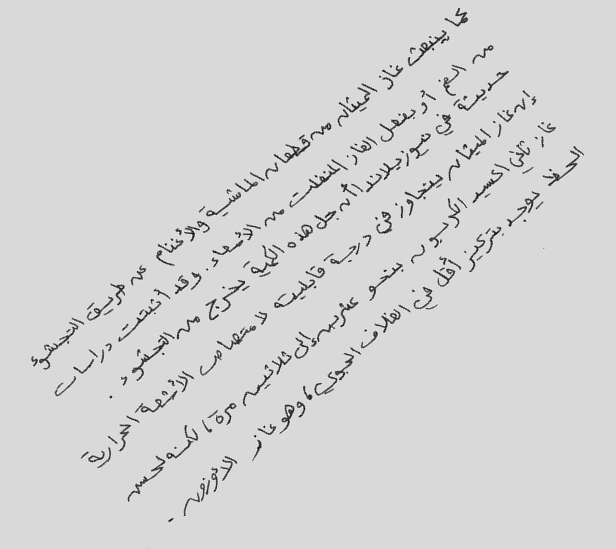 كما ينبعث غاز الميثان من قطعان الماشية والأغنام عن طريق التجشوء
من الفم أو بفعل الغاز المنفلت من الأمعاء. وقد أثبتت دراسات
حديثة في نيوزيلاندا أن جل هذه الكمية يخرج من التجشوء.
إن غاز الميثان يتجاوز في درجة قابليته لامتصاص الأشعة الحرارية
غاز ثاني اكسيد الكربون بنحو عشرين إلى ثلاثين مرة، لكنه لحسن
الحظ يوجد بتركيز أقل في الغلاف الجوي، وهو غاز الاوزون.